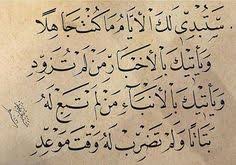 سَتُبْدِي لَكَ الْأَيَّامُ مَا كُنْتَ جَاهِلًا
وَيَأْتِيكَ بِالْأَخْبَارِ مَنْ لَمْ تُزَوِّدِ
وَيَأْتِيكَ بِالْأَنْبَاءِ مَنْ لَمْ تَبِعْ لَهُ
بَتَاتًا وَلَمْ تَضْرِبْ لَهُ وَقْتَ مَوْعِدِ